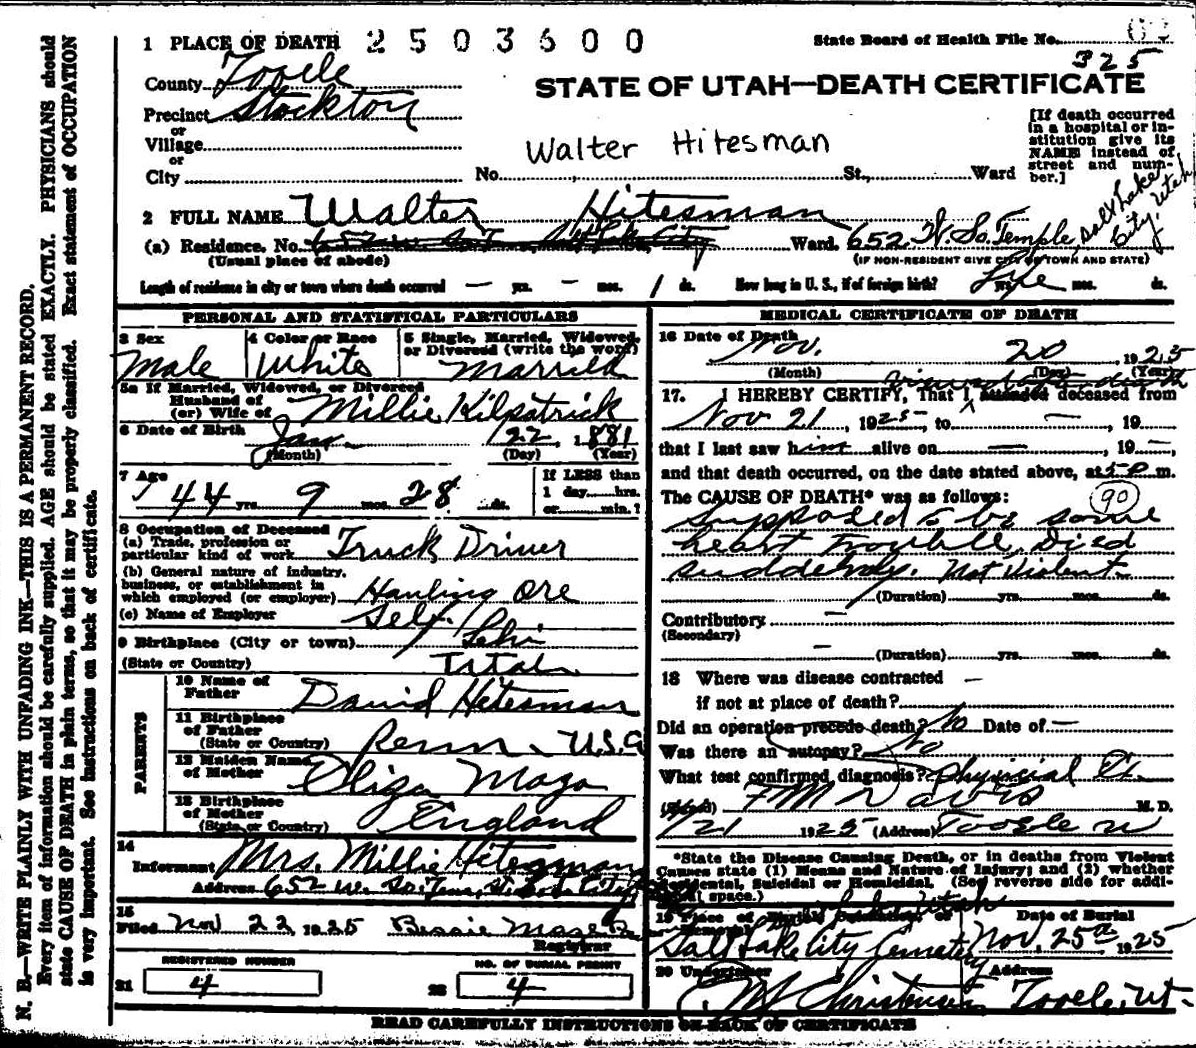 1 PLACE OF DEATH 2503600
State Board of Health File No.
325
County Tooele
STATE OF UTAH—DEATH CERTIFICATE
Precinct Stockton
or
Village
or
City
No. St., Ward
Walter Hitesman
[If death occurred
in a hospital or in-
stitution give its
NAME instead of
street and num-
ber.]
2 FULL NAME Walter Hitesman
(a) Residence, No. Ward. 652 W. So. Temple, Salt Lake City, Utah
(Usual place of abode)
(IF NON-RESIDENT GIVE CITY OR TOWN AND STATE)
Length of residence in city or town where death occurred — yrs. — mos. 1 ds. How long in U. S., if of foreign birth? Life yrs. mos. ds.
PERSONAL AND STATISTICAL PARTICULARS
3 Sex
Male
4 Color or Race
White
5 Single, Married, Widowed,
or Divorced (write the word)
Married
5a If Married, Widowed, or Divorced
Husband of
(or) Wife of Millie Kilpatrick
6 Date of Birth Jan 22, 1881
(Month) (Day) (Year)
7 Age
44 yrs. 9 mos. 28 ds.
If LESS than
1 day......hrs.
or......min.?
8 Occupation of Deceased
(a) Trade, profession or
particular kind of work Truck Driver
(b) General nature of industry,
business, or establishment in
which employed (or employer) Hauling Ore
(c) Name of Employer Self
9 Birthplace (City or town) Lehi
(State or Country) Utah
PARENTS
10 Name of
Father David Hitesman
11 Birthplace
of Father
(State or Country) Penn. U.S.A
12 Maiden Name
of Mother Eliza
13 Birthplace
of Mother
(State or Country) England
14
Informant Mrs. Millie Hitesman
Address 652 W. So. Temp.
15
Filed Nov 22 1925 Bessie
Registrar
REGISTERED NUMBER
21 4
NO. OF BURIAL PERMIT
22 4
MEDICAL CERTIFICATE OF DEATH
16 Date of Death
Nov. 20 1925
(Month) (Day) (Year)
17. I HEREBY CERTIFY, That I attended deceased from
Nov 21, 1925, to —, 19
that I last saw him alive on —, 19—,
and that death occurred, on the date stated above, at 5 P m.
The CAUSE OF DEATH* was as follows:
90
Supposed to be some
heart trouble. Died
suddenly. Not Violent.
(Duration) yrs. mos. ds.
Contributory —
(Secondary)
— (Duration) yrs. mos. ds.
18 Where was disease contracted —
if not at place of death?
Did an operation precede death? No Date of —
Was there an autopsy? No
What test confirmed diagnosis? Physical Ex.
(Signed) F M Davis M. D.
11/21 1925 (Address) Tooele U
*State the Disease Causing Death, or in deaths from Violent
Causes state (1) Means and Nature of Injury; and (2) whether
Accidental, Suicidal or Homicidal. (See reverse side for addi-
tional space.)
19 Place of Burial, Cremation, or
Removal
Salt Lake City Cemetery Utah
Date of Burial
Nov. 25th 1925
20 Undertaker
Christensen
Address
Tooele, Ut.
READ CAREFULLY INSTRUCTIONS ON BACK OF CERTIFICATE
N. B.—WRITE PLAINLY WITH UNFADING INK—THIS IS A PERMANENT RECORD.
Every item of information should be carefully supplied. AGE should be stated EXACTLY. PHYSICIANS should
state CAUSE OF DEATH in plain terms, so that it may be properly classified. Exact statement of OCCUPATION
is very important. See instructions on back of certificate.